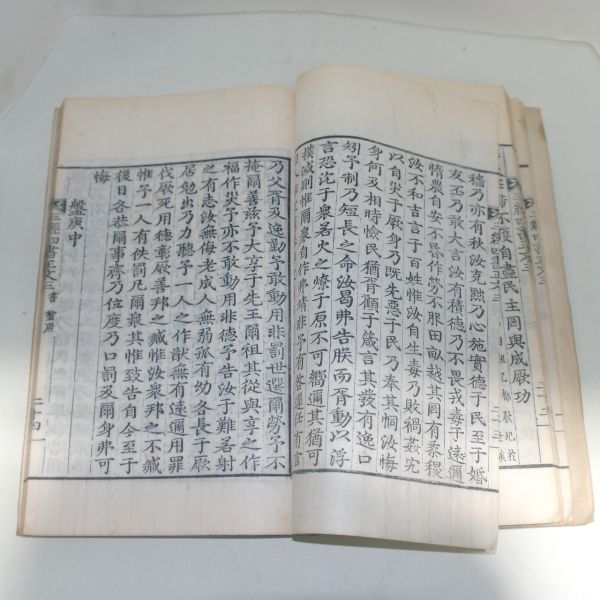 不獲自盡民主罔與成厥功
穡乃亦有秋汝克黜乃心施實德于民至于婚
友丕乃敢大言汝有積德乃不畏戎毒于遠邇
惰農自安不昏作勞不服田畝越其罔有黍稷
汝不和吉言于百姓惟汝自生毒乃敗禍姦宄
以自災于厥身乃旣先惡于民乃奉其恫汝悔
身何及相時憸民猶胥顧于箴言其發有逸口
矧予制乃短長之命汝曷弗告朕而胥動以浮
言恐沈于衆若火之燎于原不可嚮邇其猶可
撲滅則惟爾衆自作弗靖非予有咎遲任有言
乃父胥及逸勤予敢動用非罰世選爾勞予不
掩爾善玆予大享于先王爾祖其從與享之作
福作災予亦不敢動用非德予告汝于難若射
之有志汝無侮老成人無弱孤有幼各長于厥
居勉出乃力聽予一人之作猷無有遠邇用罪
伐厥死用德彰厥善邦之臧惟汝衆邦之不臧
惟予一人有佚罰凡爾衆其惟致告自今至于
後日各恭爾事齊乃位度乃口罰及爾身弗可
悔
盤庚中
三經四書正文卷三 書 盤庚 二十四